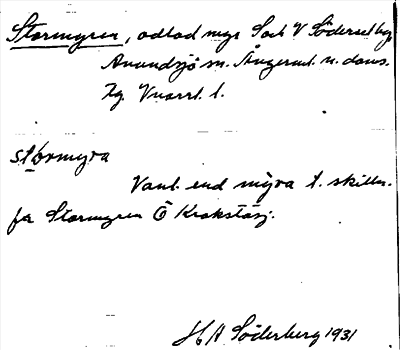 Stormyren, odlad myr S och V Södersel by
Anundsjö sn. Ångerml. n. doms.
Tg. Vnorrl. l.
stórmyra
Vanl. end myra t. skilln.
fr Stormyren Ö Krokstasj.
H A Söderberg 1931